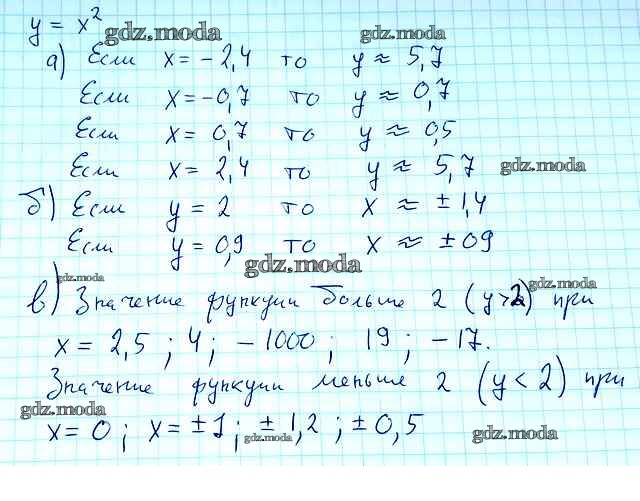 y = x²
gdz.moda gdz.moda
а) Если x = -2,4 то y ≈ 5,7
Если x = -0,7 то y ≈ 0,7
Если x = 0,7 то y ≈ 0,5
Если x = 2,4 то y ≈ 5,7
gdz.moda
б) Если y = 2 то x ≈ ± 1,4
Если y = 0,9 то x ≈ ± 09
gdz.moda
gdz.moda gdz.moda
в) Значение функции больше 2 (y > 2) при
x = 2,5 ; 4 ; -1000 ; 19 ; -17.
Значение функции меньше 2 (y < 2) при
gdz.moda
x = 0 ; x = ± 1 ; ± 1,2 ; ± 0,5
gdz.moda gdz.moda